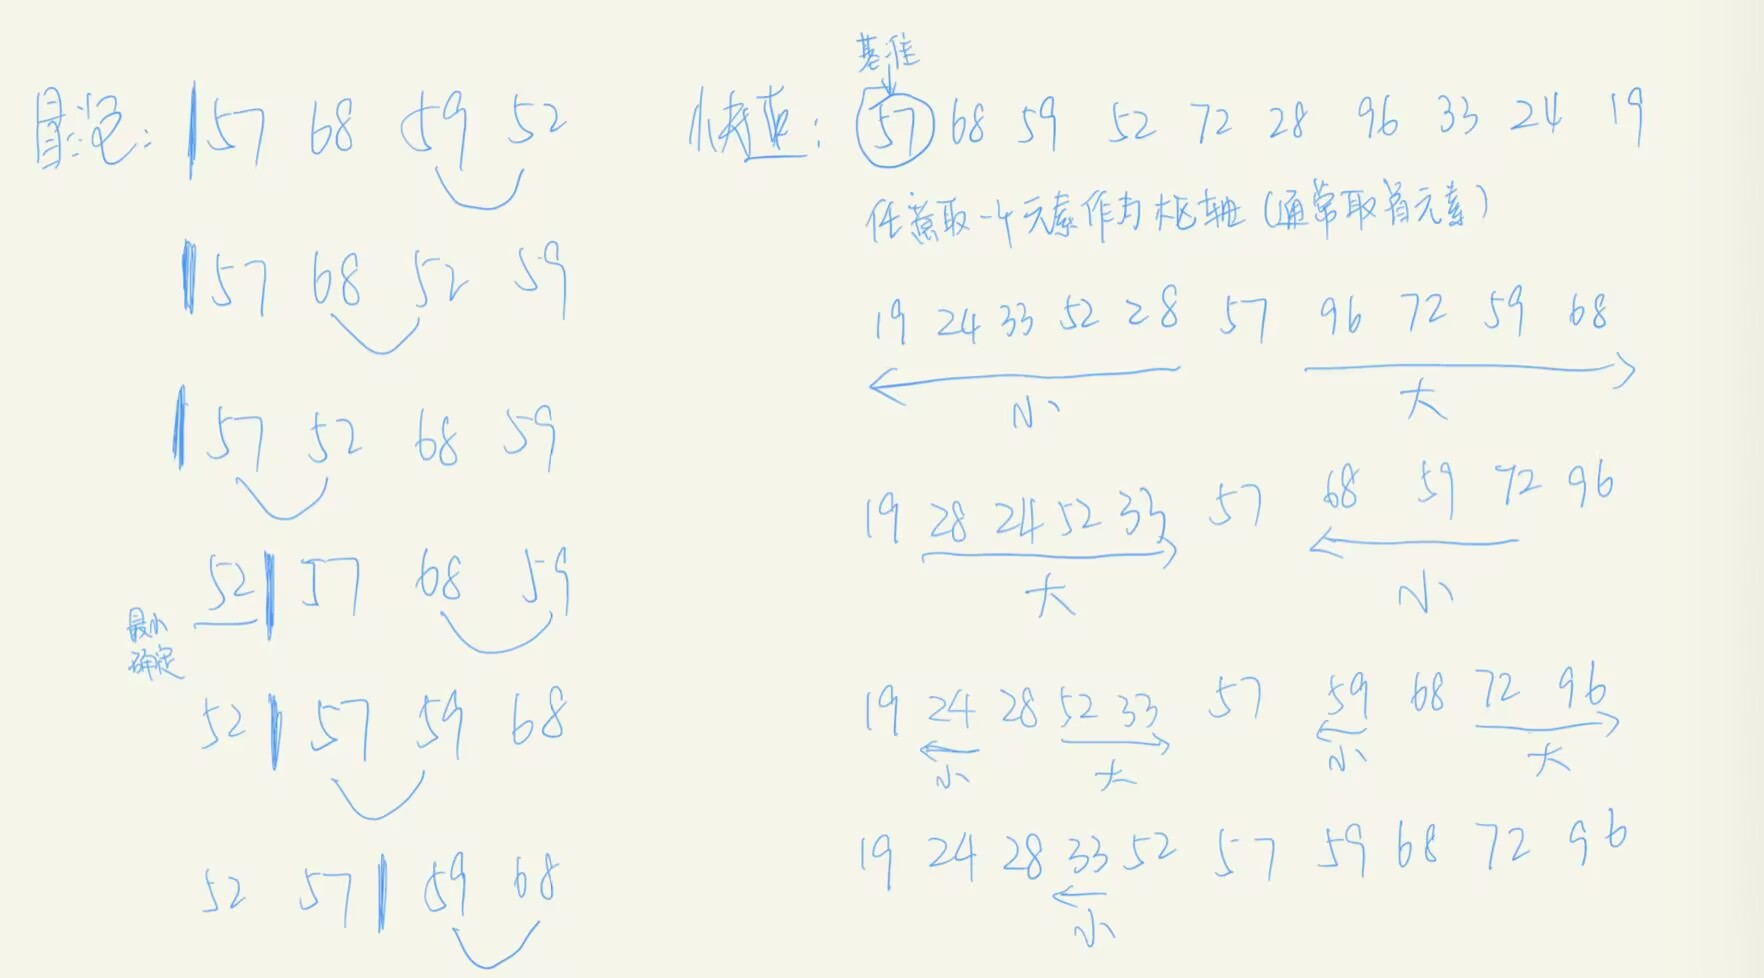 冒泡: 57 68 59 52
57 68 52 59
57 52 68 59
52 57 68 59
最小
确定
52 57 59 68
52 57 59 68
基准
快速: 57 68 59 52 72 28 96 33 24 19
任意取一个元素作为枢轴(通常取首元素)
19 24 33 52 28 57 96 72 59 68
小 大
19 28 24 52 33 57 68 59 72 96
大 小
19 24 28 52 33 57 59 68 72 96
小 大 小 大
19 24 28 33 52 57 59 68 72 96
小